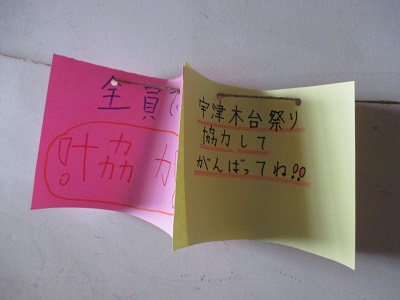 全員で
宇津木台祭り
協力して
がんばってね!!